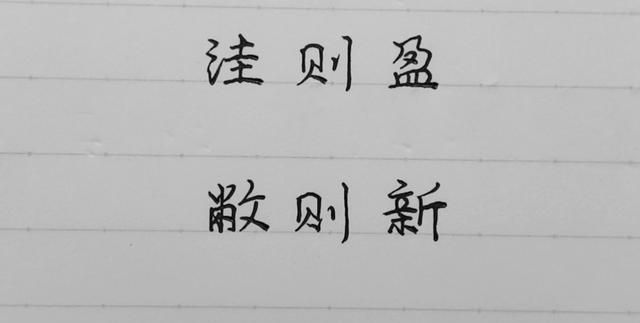 洼则盈
敝则新